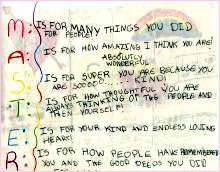 M: IS FOR MANY THINGS YOU DID
FOR PEOPLE
A: IS FOR HOW AMAZING I THINK YOU ARE!
ABSOLUTLY
WONDERFUL
S: IS FOR SUPER YOU ARE BECAUSE YOU
ARE SOOOOO KIND!
T: IS FOR HOW THOUGHTFUL YOU ARE
ALWAYS THINKING OF THE PEOPLE AND
THEN YOURSELF!
E: IS FOR YOUR KIND AND ENDLESS LOVING
HEART!
R: IS FOR HOW PEOPLE HAVE REMEMBERED
YOU AND THE GOOD DEEDS YOU DID